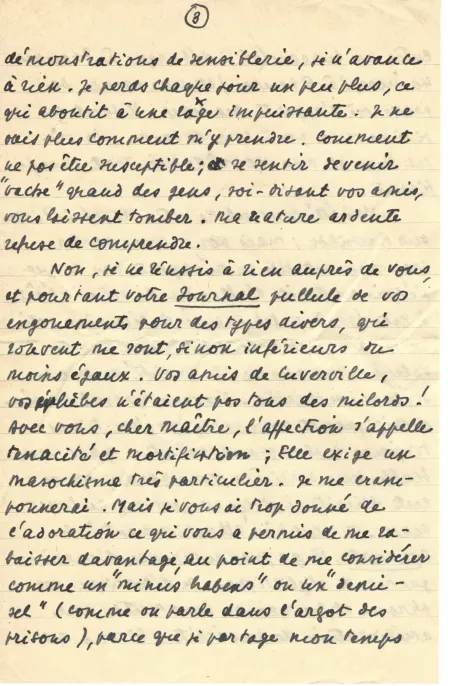 8
démonstrations de sensiblerie, je n'avance
à rien. Je perds chaque jour un peu plus, ce
qui aboutit à une rage impuissante. Je ne
sais plus comment m'y prendre. Comment
ne pas être susceptible; se sentir devenir
"vache" quand des gens, soi-disant vos amis,
vous laissent tomber. Ma nature ardente
refuse de comprendre.
Non, je ne réussis à rien auprès de vous,
et pourtant votre Journal pullule de vos
engouements pour des types divers, qui
souvent me sont, sinon inférieurs du
moins égaux. Vos amis de Cuverville,
vos éphèbes n'étaient pas tous des milords!
Avec vous, cher maître, l'affection s'appelle
ténacité et mortification; Elle exige un
masochisme très particulier. Je me cram-
ponnerai. Mais je vous ai trop donné de
l'adoration ce qui vous a permis de me ra-
baisser davantage, au point de me considérer
comme un "minus habens" ou un "demi-
sel" (comme on parle dans l'argot des
prisons), parce que je partage mon temps